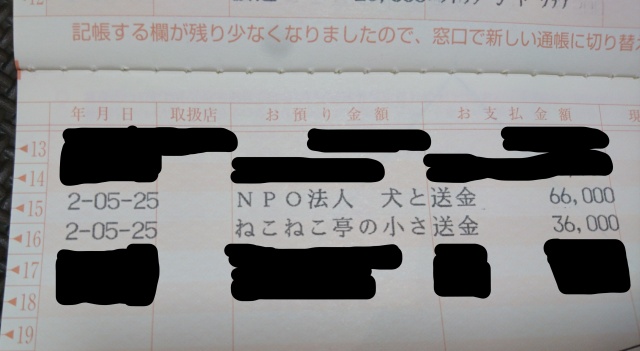 記帳する欄が残り少なくなりましたので、窓口で新しい通帳に切り替え
年月日 取扱店 お預り金額 お支払金額 現
◀13
◀14
◀15 2-05-25 NPO法人 犬と送金 66,000
◀16 2-05-25 ねこねこ亭の小さ送金 36,000
◀17
◀18
◀19